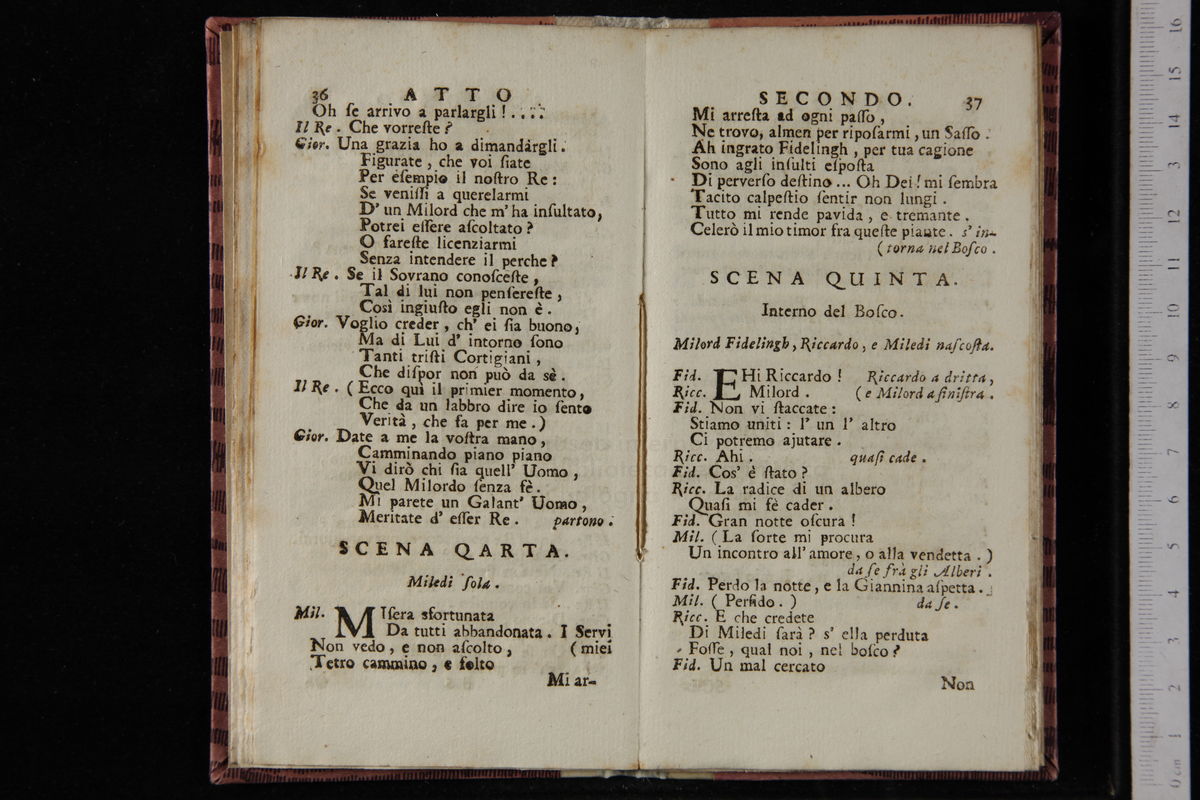 36 ATTO
Oh ſe arrivo a parlargli! . . . .
Il Re. Che vorreſte?
Gior. Una grazia ho a dimandargli.
Figurate, che voi ſiate
Per eſempio il noſtro Re:
Se veniſſi a querelarmi
D' un Milord che m' ha inſultato,
Potrei eſſere aſcoltato?
O fareſte licenziarmi
Senza intendere il perche?
Il Re. Se il Sovrano conoſceſte,
Tal di lui non penſereſte,
Così ingiuſto egli non è.
Gior. Voglio creder, ch' ei ſia buono;
Ma di Lui d' intorno ſono
Tanti triſti Cortigiani,
Che diſpor non può da sè.
Il Re. (Ecco quì il primier momento,
Che da un labbro dire io ſento
Verità, che fa per me.)
Gior. Date a me la voſtra mano,
Camminando piano piano
Vi dirò chi ſia quell' Uomo,
Quel Milordo ſenza fè.
Mi parete un Galant' Uomo,
Meritate d' eſſer Re. partono.
SCENA QARTA.
Miledi ſola.
Mil. MIſera sfortunata
Da tutti abbandonata. I Servi
Non vedo, e non aſcolto, (miei
Tetro cammino, e folto
Mi ar-
SECONDO. 37
Mi arreſta ad ogni paſſo,
Ne trovo, almen per ripoſarmi, un Saſſo.
Ah ingrato Fidelingh, per tua cagione
Sono agli inſulti eſpoſta
Di perverſo deſtino ... Oh Dei! mi ſembra
Tacito calpeſtio ſentir non lungi.
Tutto mi rende pavida, e tremante.
Celerò il mio timor fra queſte piante. s' in-
(torna nel Boſco.
SCENA QUINTA.
Interno del Boſco.
Milord Fidelingh, Riccardo, e Miledi naſcoſta.
Fid. EHi Riccardo! Riccardo a dritta,
Ricc. Milord. (e Milord a ſiniſtra.
Fid. Non vi ſtaccate:
Stiamo uniti: l' un l' altro
Ci potremo ajutare.
Ricc. Ahi. quaſi cade.
Fid. Cos' è ſtato?
Ricc. La radice di un albero
Quaſi mi fè cader.
Fid. Gran notte oſcura!
Mil. (La ſorte mi procura
Un incontro all' amore, o alla vendetta.)
da ſe frà gli Alberi.
Fid. Perdo la notte, e la Giannina aſpetta.
Mil. (Perfido.) da ſe.
Ricc. E che credete
Di Miledi ſarà? s' ella perduta
Foſſe, qual noi, nel boſco?
Fid. Un mal cercato
Non